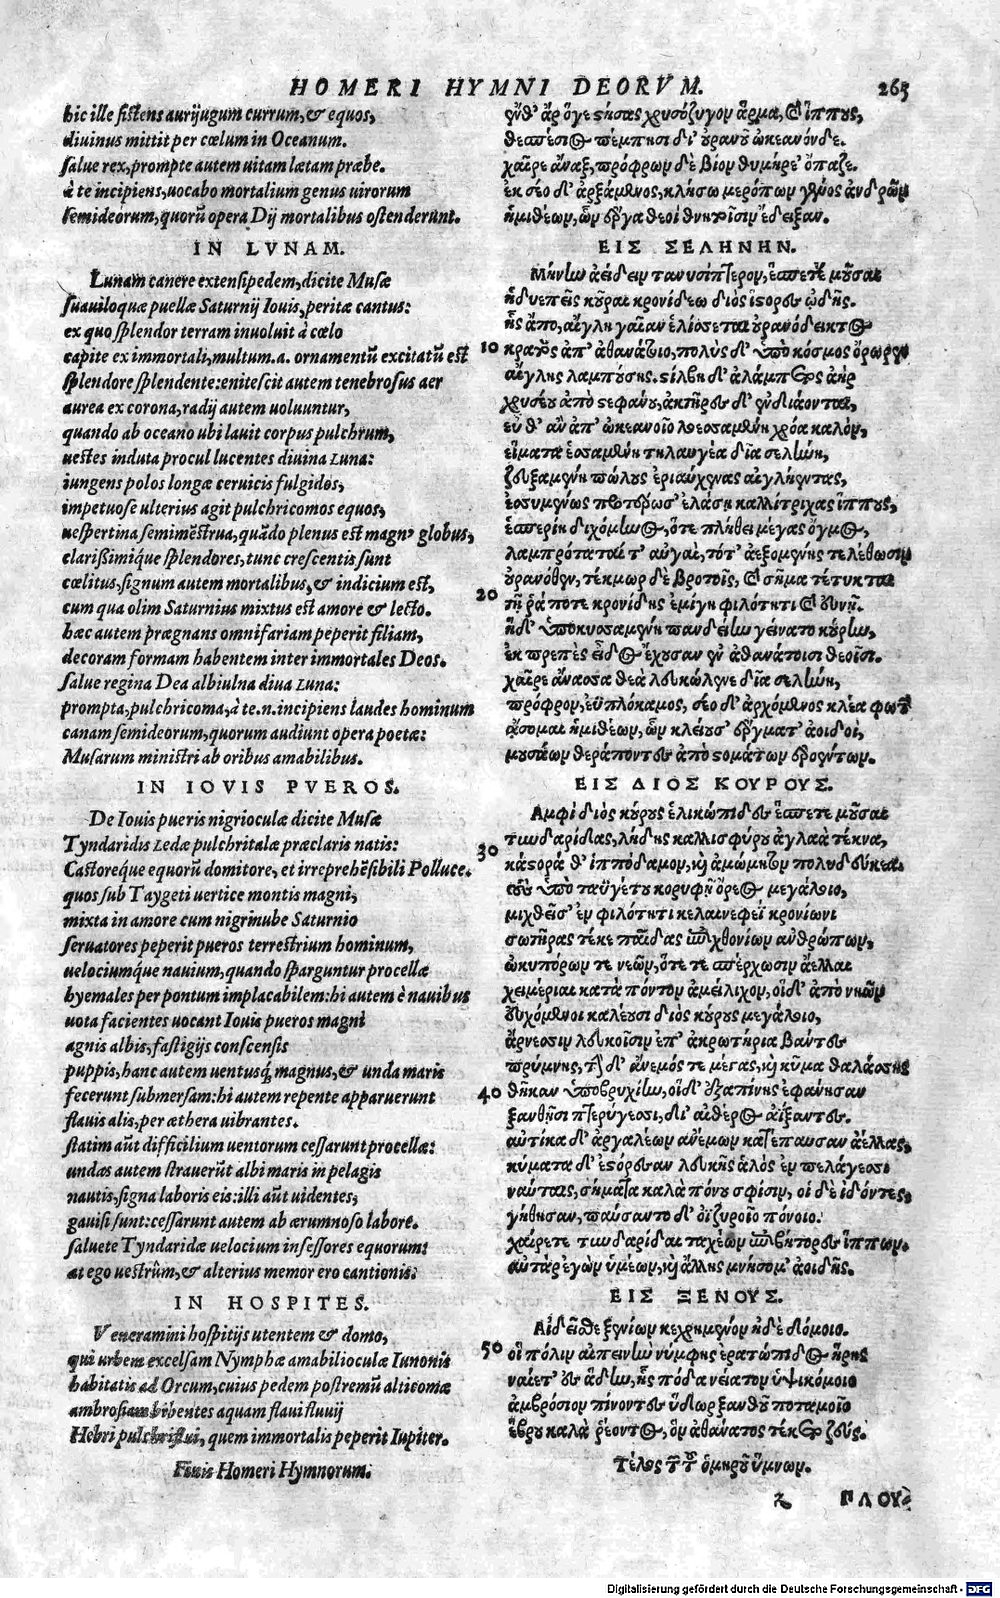 HOMERI HYMNI DEORVM. 265
hic ille sistens aurijugum currum,& equos,
diuinus mittit per cœlum in Oceanum.
salue rex,prompte autem uitam lætam præbe.
à te incipiens,uocabo mortalium genus uirorum
semideorum,quorũ opera Dij mortalibus ostenderunt.
IN LVNAM.
Lunam canere extensipedem,dicite Musæ
suauiloquæ puellæ Saturnij Iouis,peritæ cantus:
ex quo splendor terram inuoluit à cœlo
capite ex immortali,multum.a. ornamentũ excitatũ est
splendore splendente:enitescit autem tenebrosus aer
aurea ex corona,radij autem uoluuntur,
quando ab oceano ubi lauit corpus pulchrum,
uestes induta procul lucentes diuina Luna:
iungens polos longæ ceruicis fulgidos,
impetuose ulterius agit pulchricomos equos,
uespertina semimẽstrua,quãdo plenus est magnꝰ globus,
clarißimiq́ue splendores,tunc crescentis sunt
cœlitus,signum autem mortalibus,& indicium est,
cum qua olim Saturnius mixtus est amore & lecto.
hæc autem prægnans omnifariam peperit filiam,
decoram formam habentem inter immortales Deos.
salue regina Dea albiulna diua Luna:
prompta,pulchricoma,à te.n.incipiens laudes hominum
canam semideorum,quorum audiunt opera poetæ:
Musarum ministri ab oribus amabilibus.
IN IOVIS PVEROS.
De Iouis pueris nigrioculæ dicite Musæ
Tyndaridis Ledæ pulchritalæ præclaris natis:
Castoreq́ue equorũ domitore, et irreprehẽsibili Polluce.
quos sub Taygeti uertice montis magni,
mixta in amore cum nigrinube Saturnio
seruatores peperit pueros terrestrium hominum,
uelociumq́ue nauium,quando sparguntur procellæ
hyemales per pontum implacabilem:hi autem è nauibus
uota facientes uocant Iouis pueros magni
agnis albis,fastigijs conscensis
puppis,hanc autem uentusq́; magnus,& unda maris
fecerunt submersam:hi autem repente apparuerunt
flauis alis,per æthera uibrantes.
statim aũt difficilium uentorum cessarunt procellæ:
undas autem strauerũt albi maris in pelagis
nautis,signa laboris eis:illi aũt uidentes,
gauisi sunt:cessarunt autem ab ærumnoso labore.
saluete Tyndaridæ uelocium insessores equorum:
at ego uestrûm,& alterius memor ero cantionis.
IN HOSPITES.
Veneramini hospitijs utentem & domo,
qui urbem excelsam Nymphæ amabilioculæ Iunonis
habitatis ad Orcum,cuius pedem postremũ alticomæ
ambrosiam bibentes aquam flaui fluuij
Hebri pulchriflui, quem immortalis peperit Iupiter.
Finis Homeri Hymnorum.
ἔνθ' ἄρ ὅγε στήσας χρυσόζυγον ἅρμα, καὶ ἵππους,
θεσπέσιος πέμπησι δι' οὐρανοῦ ὠκεανόνδε.
χαῖρε ἄναξ, πρόφρων δὲ βίον θυμήρε' ὄπαζε.
ἐκ σέο δ' ἀρξάμενος, κλήσω μερόπων γένος ἀνδρῶν
ἡμιθέων, ὧν ἔργα θεοὶ θνητοῖσιν ἔδειξαν.
ΕΙΣ ΣΕΛΗΝΗΝ.
Μήνην ἀείδειν τανυσίπτερον, ἕσπετε μοῦσαι
ἡδυεπεῖς κοῦραι κρονίδεω διὸς ἵστορες ᾠδῆς.
ἧς ἄπο, αἴγλη γαῖαν ἑλίσσεται οὐρανόδεικτος
10 κρατὸς ἀπ' ἀθανάτοιο, πολὺς δ' ὑπὸ κόσμος ὄρωρεν
αἴγλης λαμπούσης. στίλβῃ δ' ἀλάμπετος ἀὴρ
χρυσέου ἀπὸ στεφάνου, ἀκτῆρες δ' ἐνδιάονται,
εὖ θ' ἂν ἀπ' ὠκεανοῖο λοεσσαμένη χρόα καλὸν,
εἵματα ἑσσαμένη τηλαυγέα δῖα σελήνη,
ζευξαμένη πώλους ἐριαύχενας αἰγλήεντας,
ἐσσυμένως προτέρωσ' ἐλάσῃ καλλίτριχας ἵππους,
ἑσπερίη διχόμηνος, ὅτε πλήθει μέγας ὄγμος,
λαμπρόταταί τ' αὐγαὶ, τότ' ἀεξομένης τελέθωσιν
οὐρανόθεν, τέκμωρ δὲ βροτοῖς, καὶ σῆμα τέτυκται
20 τῇ ῥά ποτε κρονίδης ἐμίγη φιλότητι καὶ εὐνῇ.
ἡ δ' ὑποκυσσαμένη πανδείην γείνατο κούρην,
ἐκπρεπὲς εἶδος ἔχουσαν ἐν ἀθανάτοισι θεοῖσι.
χαῖρε ἄνασσα θεὰ λευκώλενε δῖα σελήνη,
πρόφρον, ἐϋπλόκαμος, σέο δ' ἀρχόμενος κλέα φωτῶν
ᾄσομαι ἡμιθέων, ὧν κλείουσ' ἔργματ' ἀοιδοὶ,
μουσάων θεράποντες ἀπὸ στομάτων ἐροέντων.
ΕΙΣ ΔΙΟΣ ΚΟΥΡΟΥΣ.
Αμφὶ διὸς κούρους ἑλικώπιδες ἕσπετε μοῦσαι
τυνδαρίδας, λήδης καλλισφύρου ἀγλαὰ τέκνα,
30 κάστορά θ' ἱππόδαμον, κὶ ἀμώμητον πολυδεύκεα.
τοὺς ὑπὸ ταϋγέτου κορυφῇ ὄρεος μεγάλοιο,
μιχθεῖσ' ἐν φιλότητι κελαινεφέϊ κρονίωνι
σωτῆρας τέκε παῖδας ἐπιχθονίων ἀνθρώπων,
ὠκυπόρων τε νεῶν, ὅτε τε σπέρχωσιν ἄελλαι
χειμέριαι κατὰ πόντον ἀμείλιχον, οἱ δ' ἀπὸ νηῶν
εὐχόμενοι καλέουσι διὸς κούρους μεγάλοιο,
ἄρνεσσιν λευκοῖσιν ἐπ' ἀκρωτήρια βάντες
πρύμνης, τὴν δ' ἄνεμός τε μέγας, κὶ κῦμα θαλάσσης
40 θῆκαν ὑποβρυχίην, οἱ δ' ἐξαπίνης ἐφάνησαν
ξανθῇσι πτερύγεσσι, δι' αἰθέρος ἀΐξαντες.
αὐτίκα δ' ἀργαλέων ἀνέμων κατέπαυσαν ἀέλλας,
κύματα δ' ἐστόρεσαν λευκῆς ἁλὸς ἐν πελάγεσσι
ναύταις, σήματα καλὰ πόνου σφίσιν, οἱ δὲ ἰδόντες,
γήθησαν, παύσαντο δ' ὀϊζυροῖο πόνοιο.
χαίρετε τυνδαρίδαι ταχέων ἐπιβήτορες ἵππων.
αὐτὰρ ἐγὼν ὑμέων, κὶ ἄλλης μνήσομ' ἀοιδῆς.
ΕΙΣ ΞΕΝΟΥΣ.
Αἰδεῖσθε ξενίων κεχρημένον ἠδὲ δόμοιο.
50 οἳ πόλιν αἰπεινὴν νύμφης ἐρατώπιδος ἥρης
ναίετ' ἐς ἅδην, ἧς πόδα νείατον ὑψικόμοιο
ἀμβρόσιον πίνοντες ὕδωρ ξανθοῦ ποταμοῖο
ἕβρου καλὰ ῥέοντος, ὃν ἀθάνατος τέκετο ζεύς.
Τέλος τῶν τοῦ ὁμήρου ὕμνων.
z ΠΛΟΥ
Digitalisierung gefördert durch die Deutsche Forschungsgemeinschaft - DFG